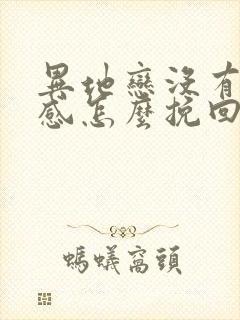 異地戀沒有
感怎麼挽回
螞蟻窩頭